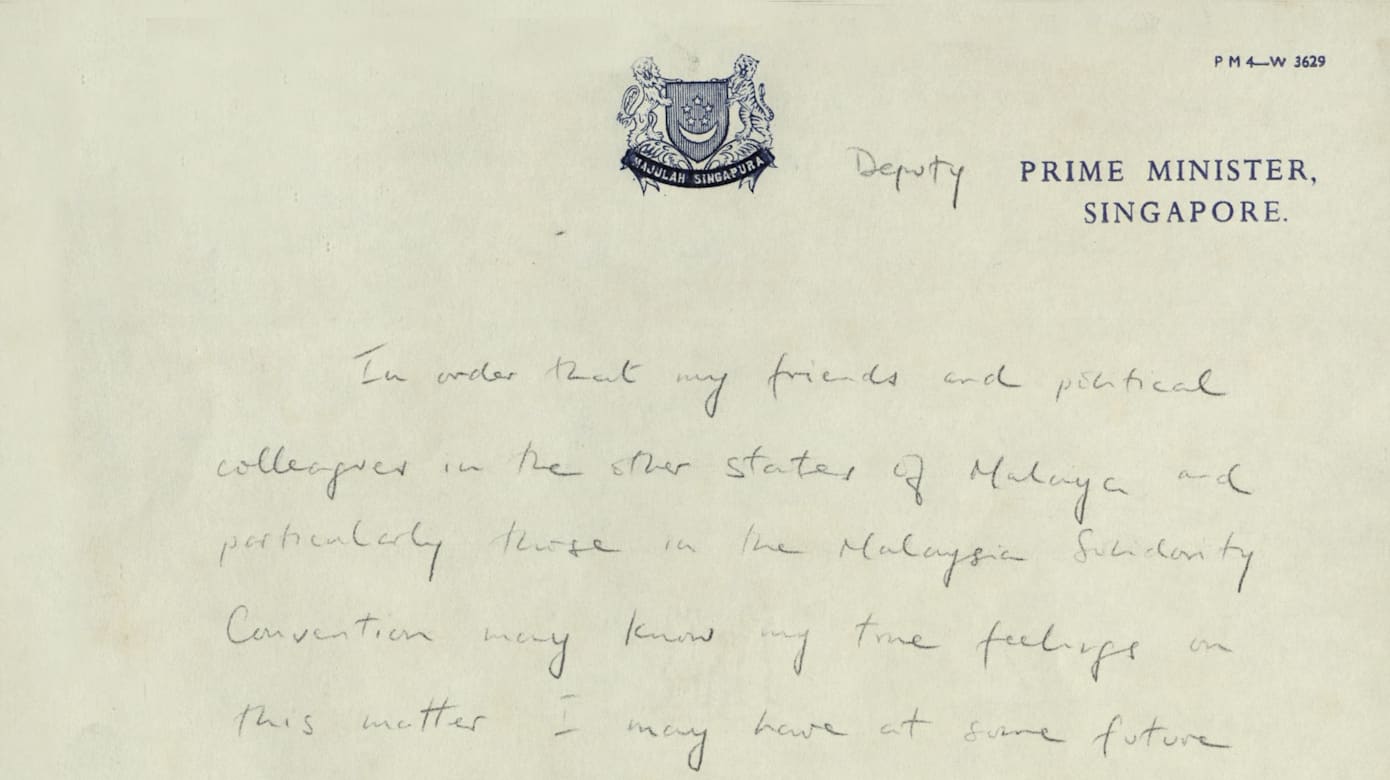 P M 4—W 3629
MAJULAH SINGAPURA
Deputy PRIME MINISTER,
SINGAPORE.
In order that my friends and political
colleagues in the other states of Malaya and
particularly those in the Malaysia Solidarity
Convention may know my true feelings on
this matter I may have at some future